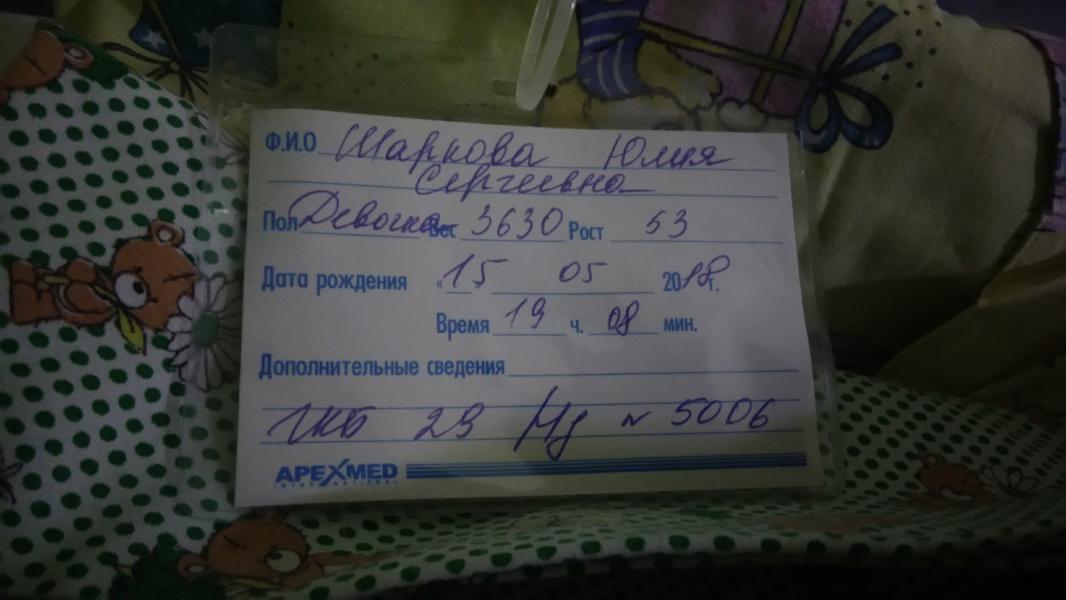 Ф.И.О Шаркова Юлия
Сергеевна
Пол Девочка Вес 3630 Рост 53
Дата рождения "15" 05 2018г.
Время 19 ч. 08 мин.
Дополнительные сведения
ГКБ 29 N 5006
APEXMED
INTERNATIONAL